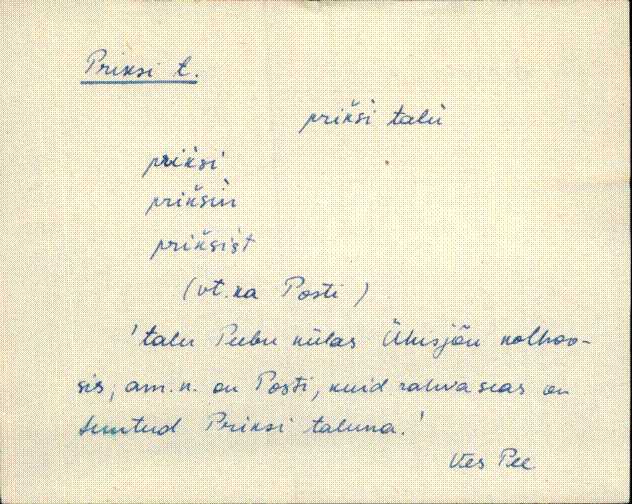 Priksi t.
prik̀si talù
prik̀si
prik̀siǹ
prik̀sist
(vt. ka Posti)
'talu Peebu külas Ühisjõu kolhoo-
sis, am. n. on Posti, kuid rahva seas on
tuntud Priksi taluna.'
Ves Pee